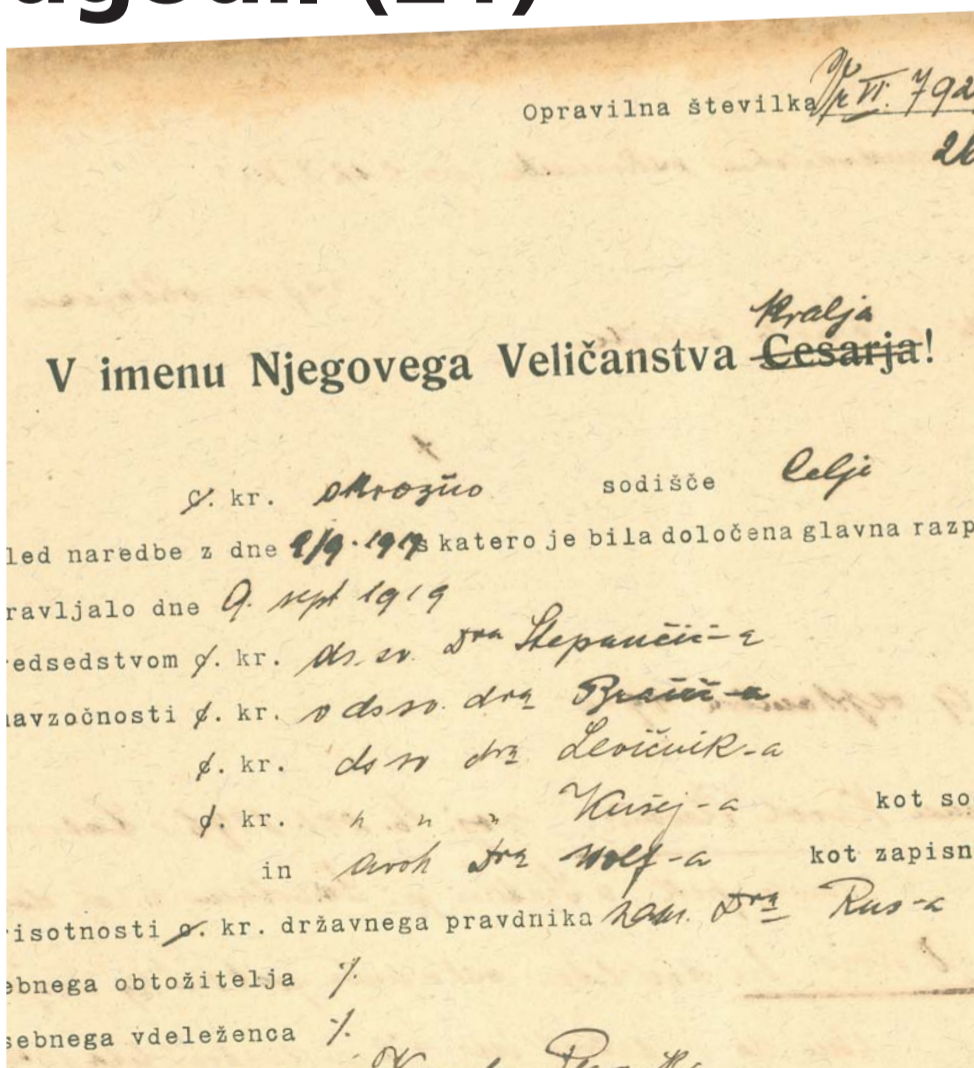 ugodi. (21)
Opravilna številka Vr VI. 792
26
Kralja
V imenu Njegovega Veličanstva Cesarja!
c. kr. okrožno sodišče Celje
led naredbe z dne 2/9. 1919 s katero je bila določena glavna razp
ravljalo dne 9. sept 1919
edsedstvom c. kr. ds. sv. Dra Stepančič-a
navzočnosti c. kr. v dssv. dra
c. kr. ds sv dra Levičnik-a
c. kr. " " " Kušej-a kot so
in avsk Dra Wolf-a kot zapisn
isotnosti c. kr. državnega pravdnika nam. Dra Rus-a
ebnega obtožitelja ·/.
sebnega vdeleženca ·/.